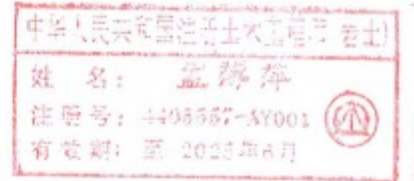 中华人民共和国注册土木工程师(岩土)
姓 名:
注册号: 4408567-AY001
有效期: 至 2025年6月